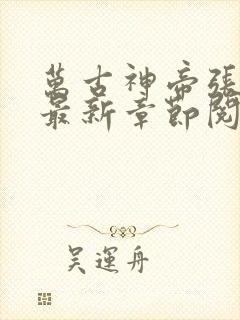 萬古神帝張
最新章節閱
吳運舟